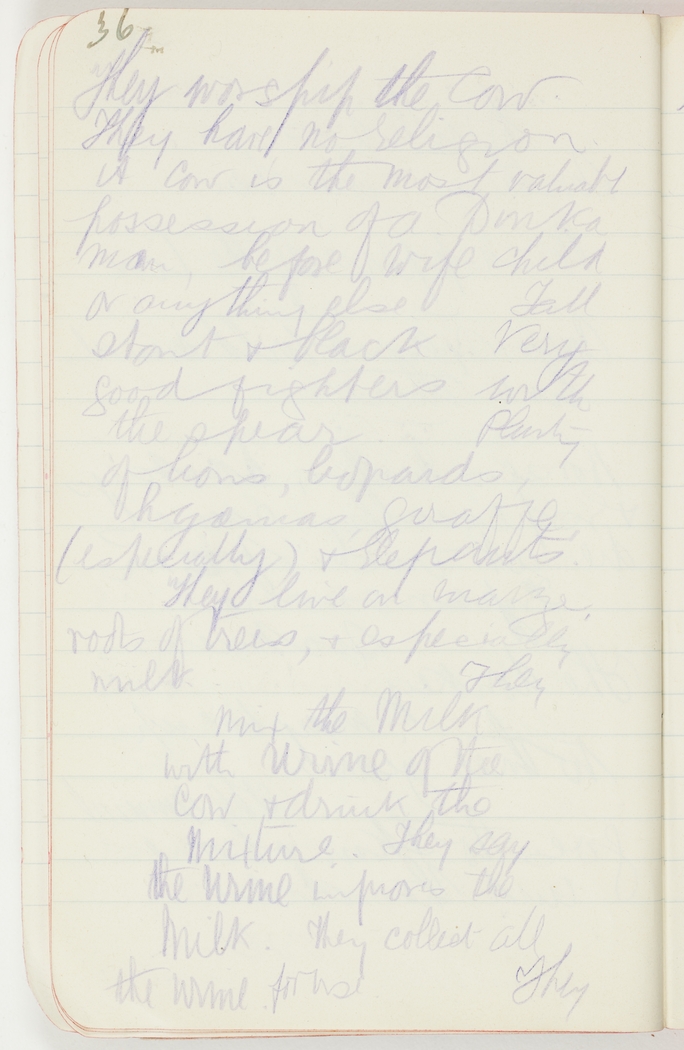 36
They worship the Cow.
They have no religion
A cow is the most valuable
possession of a Dinka
man, before wife child
or anything else Tall
stout & black Very
good fighters with
the spear. Plenty
of lions, leopards,
hyaenas, giraffe
(especially) & Elephants.
They live on maize,
roots of trees, & especially
milk. They
mix the Milk
with Urine of the
Cow & drink the
mixture. They say
the Urine improves the
Milk. They collect all
the urine for use They